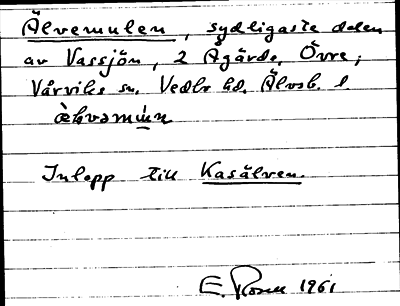 Älvemulen, sydligaste delen
av Vassjön, 2 Ågärde, Övre;
Vårviks sn. Vedbo hd. Älvsb. l.
Inlopp till Kasälven.
E. Rosell 1961